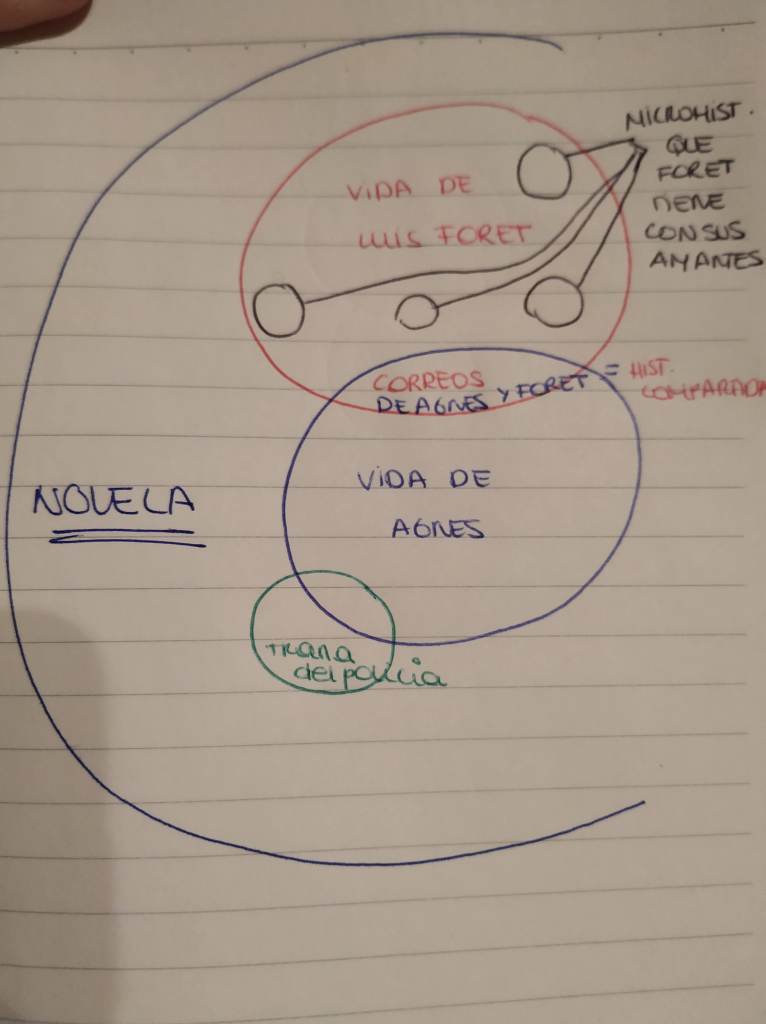 MICROHIST.
QUE
FORET
TIENE
CON SUS
AMANTES
VIDA DE
LUIS FORET
CORREOS
DE AGNES Y FORET
= HIST.
COMPARADA
VIDA DE
AGNES
NOVELA
trama
del policia